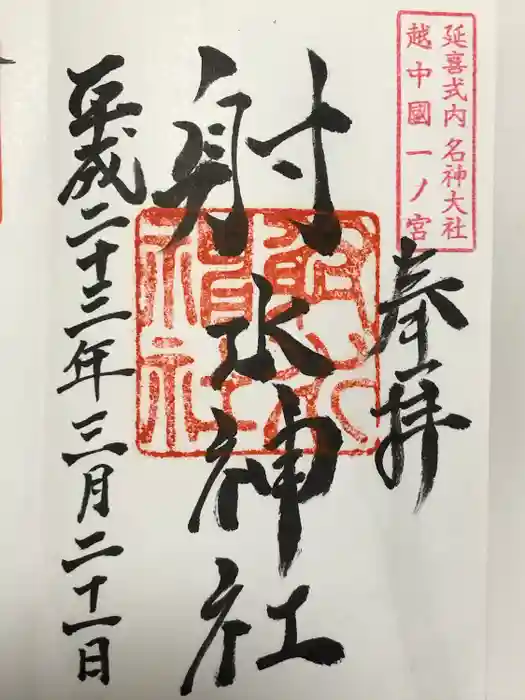 延喜式内 名神大社
越中國一ノ宮
奉拝
射水神社
射水神社
平成二十三年三月二十一日